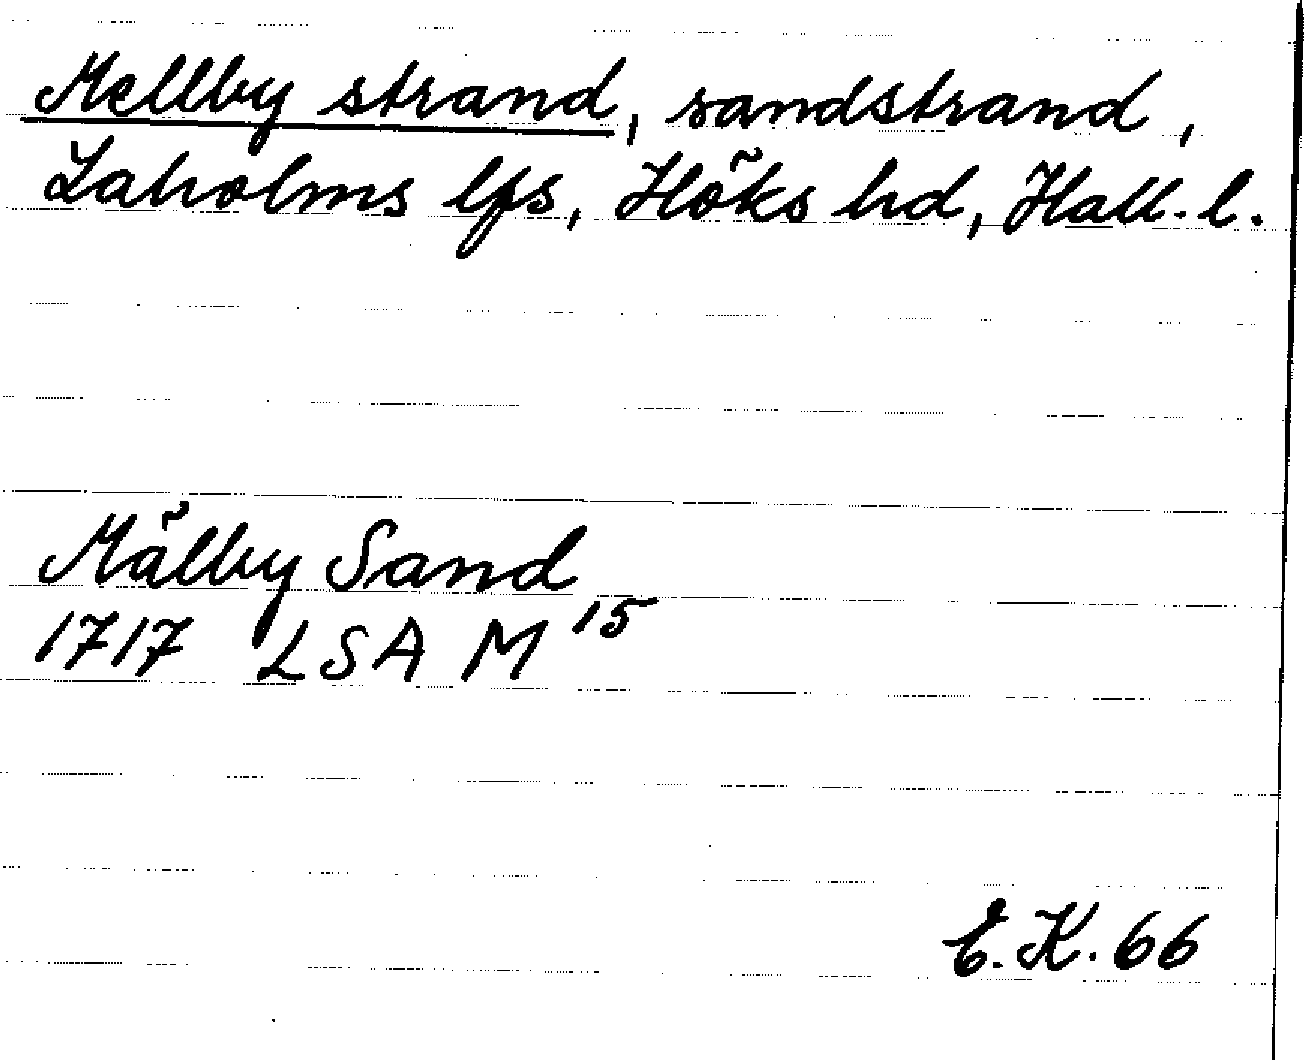 Mellby strand, sandstrand,
Laholms lfs, Höks hd, Hall. l.
Mälby Sand
1717 LSA M 15
E.K. 66